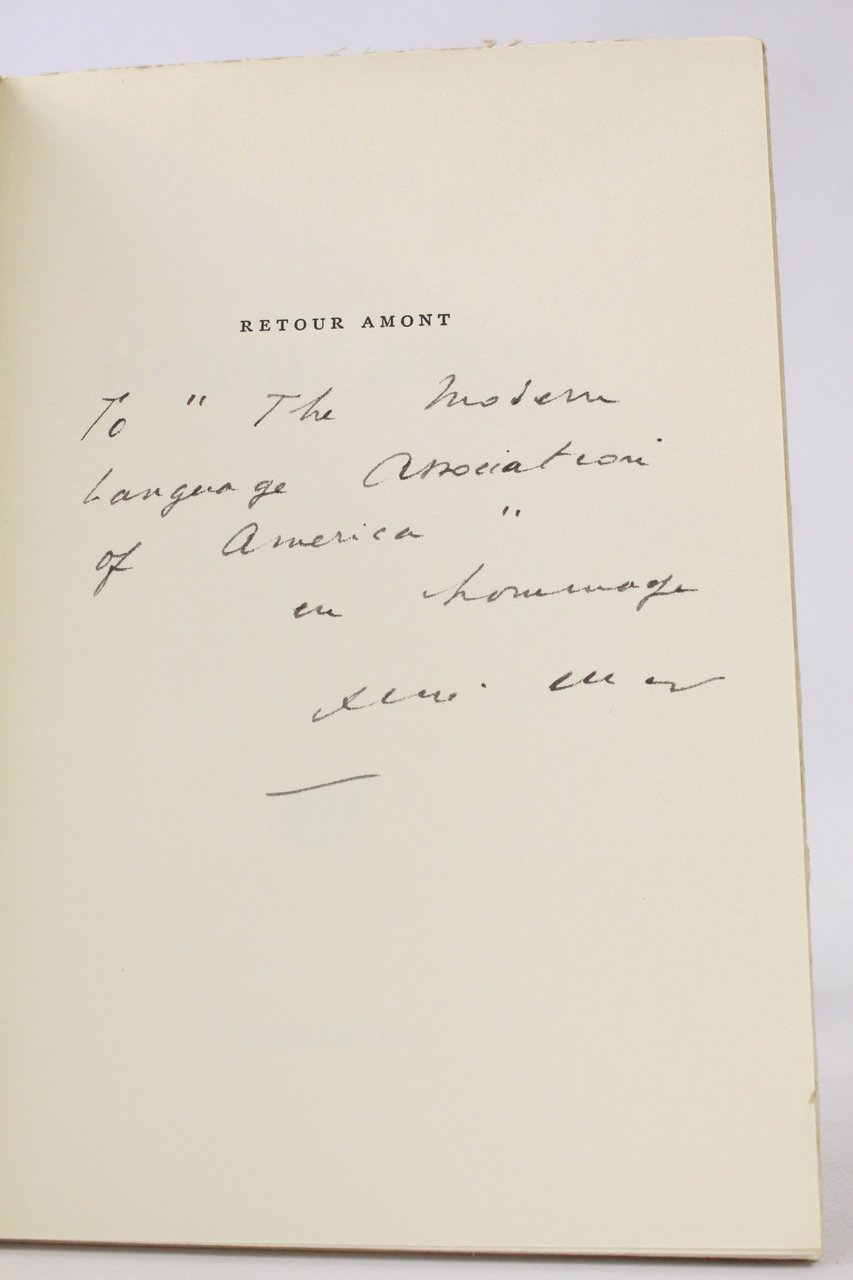 RETOUR AMONT
To " The Modern
Language Association
of America "
en hommage